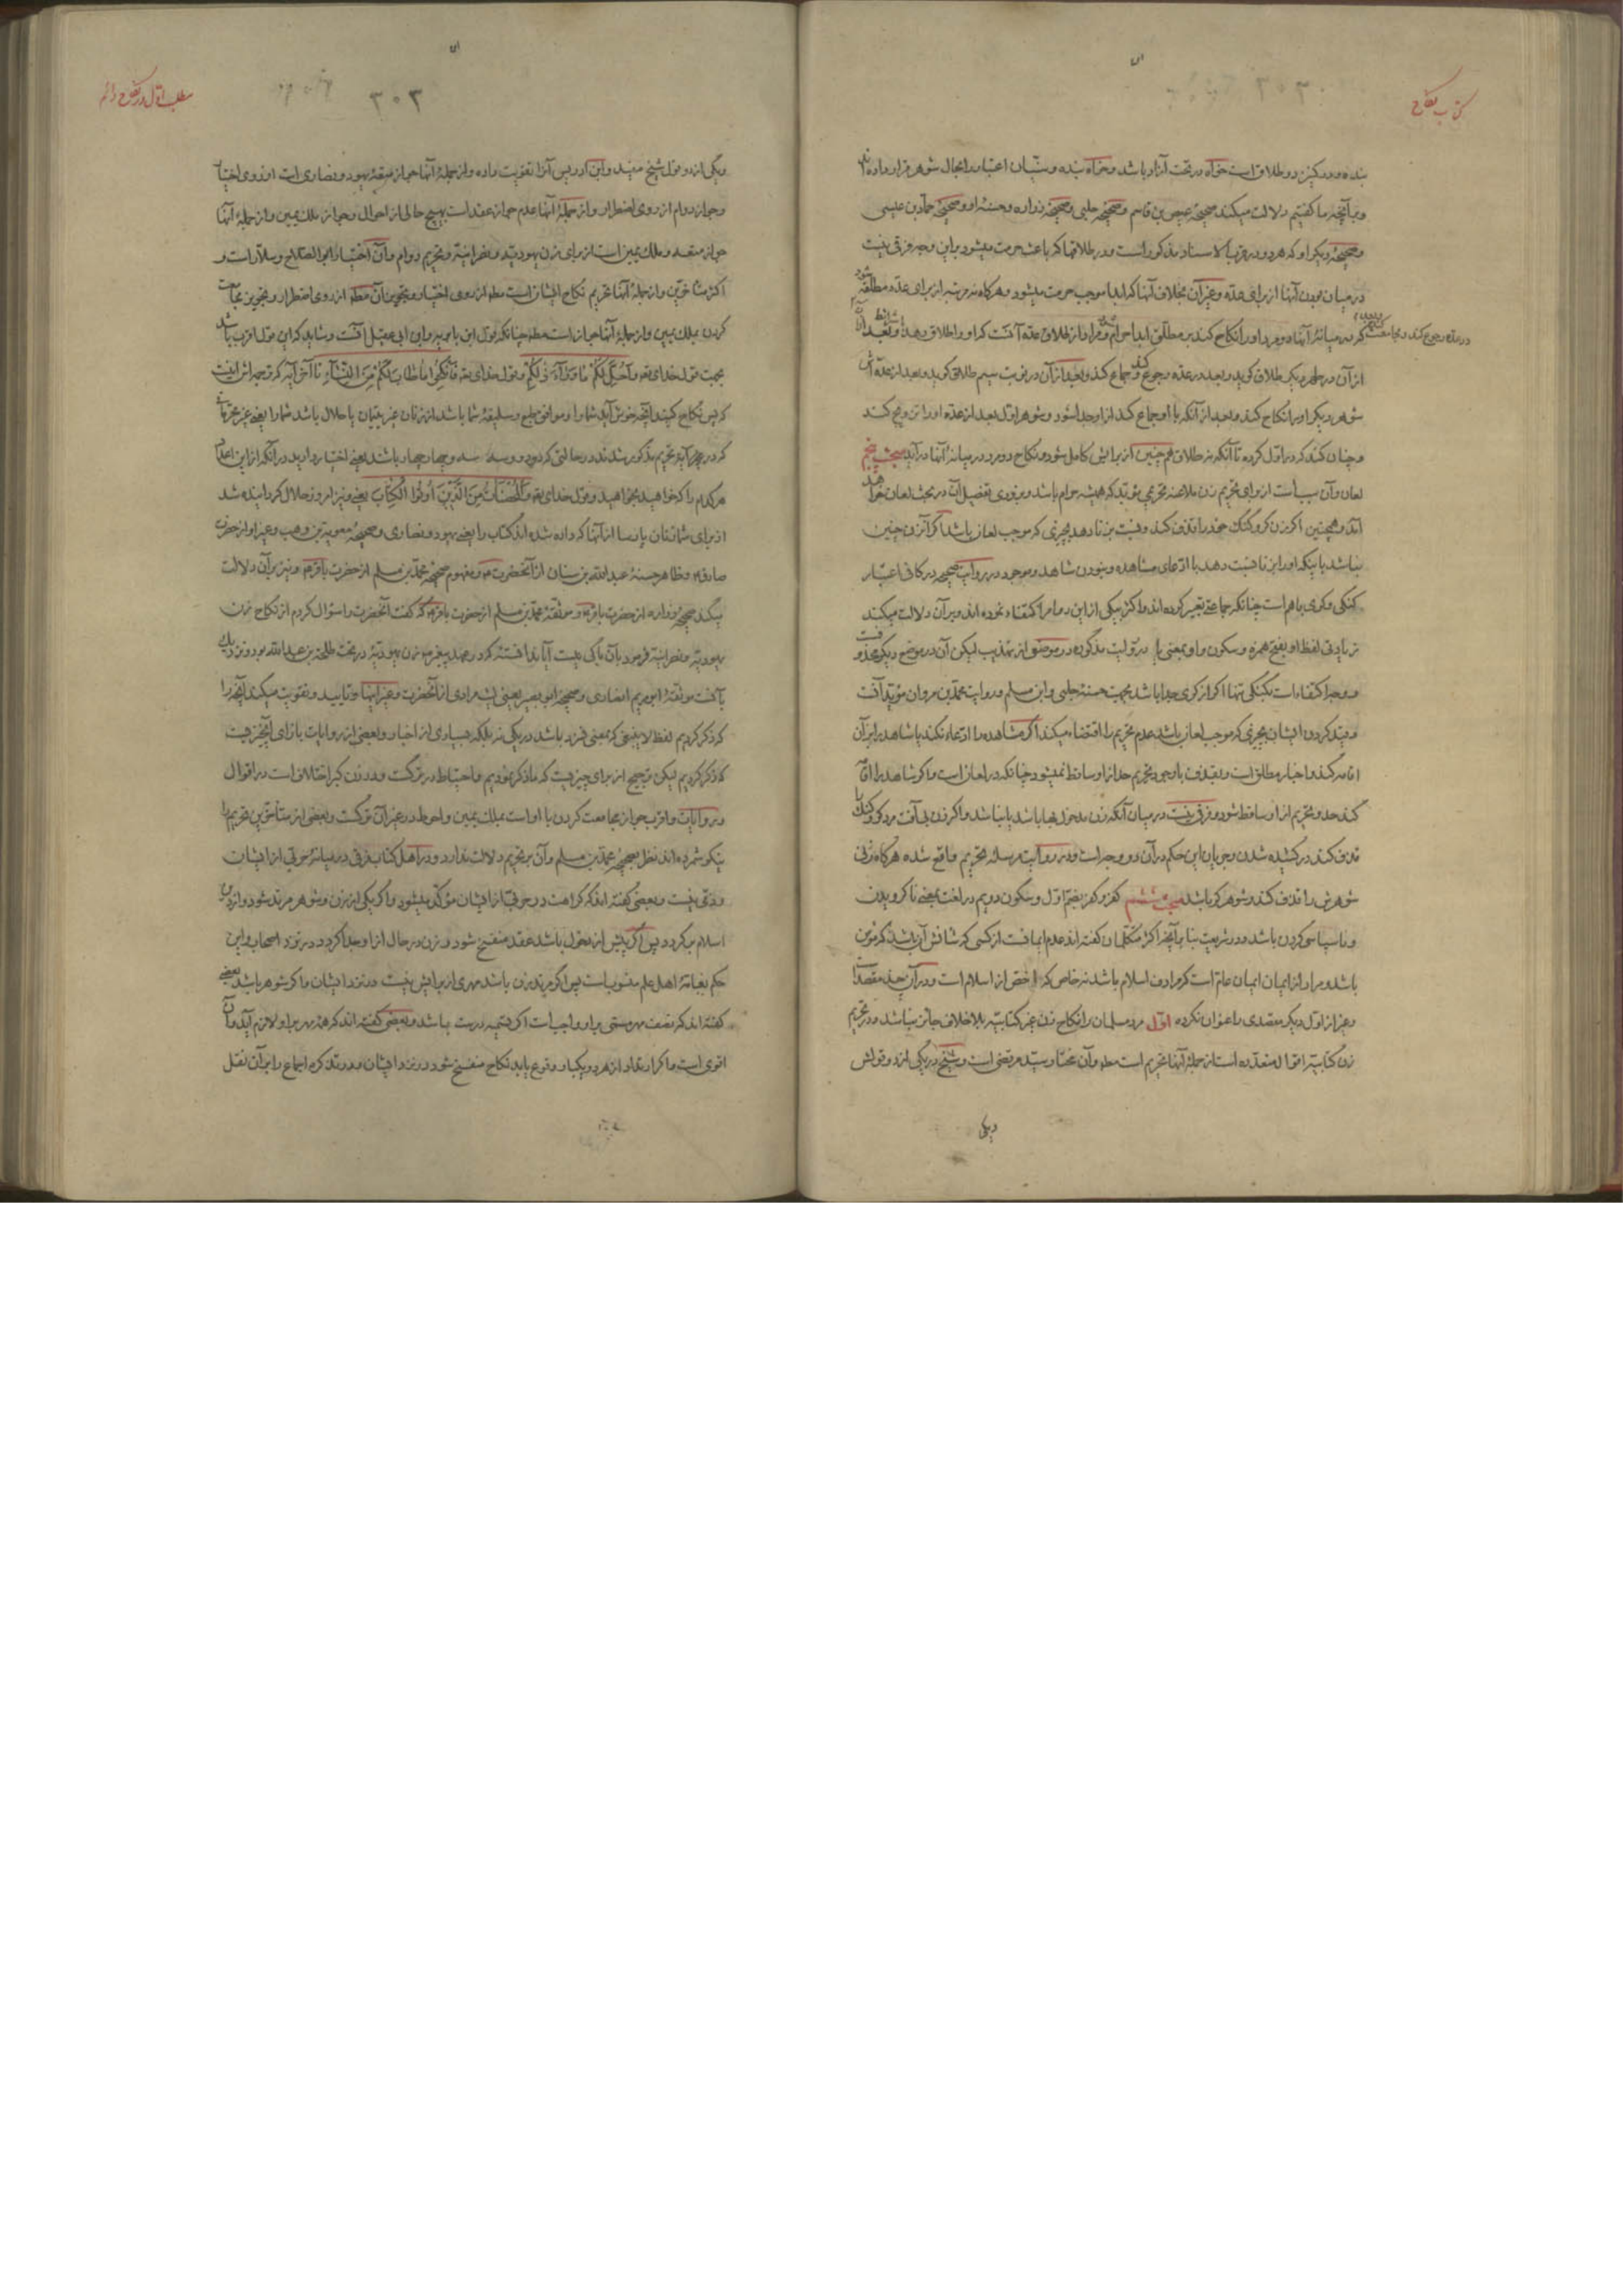 کتاب نکاح
بنده و در کنیز دو طلاق است خواه در تحت آزاد باشد و خواه بنده و سنّیان اعتبار را بحال شوهر قرار داده‌اند
و بر آنچه ما گفتیم دلالت میکند صحیحهٔ عیص بن قاسم و صحیحهٔ حلبی و صحیحهٔ زراره و حسنهٔ او و صحیحهٔ حماد بن عیسی
و صحیحهٔ دیگر او که هر دو در قرب الاسناد مذکور است و در طلاقها که باعث حرمت میشود باین وجه فرقی نیست
در میان بودن آنها از برای عدّه و غیر آن بخلاف آنها که ابدا موجب حرمت میشود و هرگاه نه مرتبه از برای عدّه مطلّقه شود
که در میانهٔ آنها دو مرد او را نکاح کنند بر مطلّق ابدا حرام شود و مراد از طلاق عدّه آنست که او را طلاق دهد بشرایط و بعد از آن
در عدّه رجوع کند و مجامعت کند
از آن در طهر دیگر طلاق گوید و بعد در عدّه رجوع کند و جماع کند و بعد از آن در نوبت سیم طلاق گوید و بعد از عدّه‌اش
شوهر دیگر او را نکاح کند و بعد از آنکه با او جماع کند از او جدا شود و شوهر اول بعد از عدّه او را تزویج کند
و چنان کند که در اول کرده تا آنکه نه طلاق همچنین از برایش کامل شود و نکاح دو مرد در میانهٔ آنها درآید مبحث پنجم
لعان و آن سبب است از برای تحریم زن ملاعنه تحریمی مؤبّد که همیشه حرام باشد و بزودی تفصیل آن در بحث لعان خواهد
آمد و همچنین اگر زن کر و گنگ خود را قذف کند و نسبت بزنا دهد بچیزی که موجب لعان باشد اگر آن زن چنین
نباشد باینکه او را بزنا نسبت دهد با ادّعای مشاهده و نبودن شاهد و موجود در روایت صحیحه در کافی اعتبار
گنگی و کری باهم است چنانکه جماعتی تعبیر کرده‌اند و اکثر بیکی از این دو امر اکتفاء نموده‌اند و بر آن دلالت میکند
زیادتی لفظ او بفتح همزه و سکون واو بمعنی یا در روایت مذکوره در موضعی از تهذیب لیکن آن در موضع دیگر محذوفست
و وجه اکتفاء است بگنگی تنها اگر از کری جدا باشد بجهت حسنهٔ حلبی و ابن مسلم و روایت محمّد بن مروان مؤیّد آنست
و مقیّد کردن ایشان بچیزی که موجب لعان باشد عدم تحریم را اقتضاء میکند اگر مشاهده را ادّعاء نکند یا شاهد بر آن
اقامه کند و اخبار مطلق است و بقذف با وجود تحریم حد از او ساقط نمیشود چنانکه در لعان است و اگر شاهد را اقامه
کند حد و تحریم از او ساقط شود و فرقی نیست در میان آنکه زن مدخول بها باشد یا نباشد و اگر زن بی‌آفت مرد کر و گنگ را
قذف کند در کشیده شدن و جریان این حکم در آن دو وجه است و در روایت مرسله تحریم واقع شده هرگاه زنی
شوهرش را قذف کند و شوهر کر باشد مبحث ششم کفر و کفر بضمّ اول و سکون دویم در لغت بمعنی ناگرویدن
و ناسپاسی کردن باشد و در شریعت بنا بر آنچه اکثر متکلّمان گفته‌اند عدم ایمانست از کسی که شانش آن باشد که مؤمن
باشد و مراد از ایمان ایمان عام است که مرادف اسلام باشد نه خاص که اخص از اسلام است و در آن چند مقصد است
و غیر از اول دیگر مقصدی را عنوان نکرده اول مرد مسلمان را نکاح زن غیر کتابیّه بلاخلاف جائز نباشد و در تحریم
زن کتابیّه اقوال متعدّده است از جملهٔ آنها تحریم است مطه و آن مختار سیّد مرتضی است و شیخ در یکی از دو قولش
ویکی
مطلب اول در نکاح دائم
۳۰۳
ویکی از دو قول شیخ مفید و ابن ادریس آنرا تقویت داده و از جملهٔ آنها جواز متعهٔ یهود و نصاری است از روی اختیار
و جواز دوام از روی اضطرار و از جملهٔ آنها عدم جواز عقد است بهیچ حالی از احوال و جواز ملک یمین و از جملهٔ آنها
جواز متعه و ملک یمین است از برای زن یهودیّه و نصرانیّه و تحریم دوام و آن اختیار ابو الصلاح و سلّار است و
اکثر متاخّرین و از جملهٔ آنها تحریم نکاح ایشان است مطه از روی اختیار و تجویز آن مطه از روی اضطرار و تجویز مجامعت
کردن بملک یمین و از جملهٔ آنها جواز است مطه چنانکه قول ابن بابویه و ابن ابی عقیل آنست و شاید که این قول اقرب باشد
بجهت قول خدای تعه وَاُحِلَّ لَکُمْ مَا وَرَآءَ ذٰلِکُمْ و قول خدای تعه فَانْکِحُوا مَا طَابَ لَکُمْ مِنَ النِّسَآءِ تا آخر آیه که ترجمه‌اش اینست
که پس نکاح کنید آنچه خوش آید شما را و موافق طبع و سلیقهٔ شما باشد از زنان غیر یتیمان یا حلال باشد شما را یعنی غیر محرّماتی
که در آیهٔ تحریم مذکور شدند در حالتی که دو دو و سه سه و چهار چهار باشند یعنی اختیار دارید در آنکه از این اعداد
هر کدام را که خواهید بخواهید و قول خدای تعه وَالْمُحْصَنَاتُ مِنَ الَّذِینَ اُوتُوا الْکِتَابَ یعنی و نیز امروز حلال گردانیده شد
از برای شما زنان پارسا از آنها که داده شده‌اند کتاب را یعنی یهود و نصاری و صحیحهٔ معویة بن وهب و غیر او از حضرت
صادق ع و ظاهر حسنهٔ عبد الله بن سنان از آنحضرت ع و مفهوم صحیحهٔ محمّد بن مسلم از حضرت باقر ع و نیز بر آن دلالت
میکند صحیحهٔ زراره از حضرت باقر ع و موثّقهٔ محمّد بن مسلم از حضرت باقر ع که گفت آنحضرت را سؤال کردم از نکاح زن
یهودیّه و نصرانیّه فرمود بآن باکی نیست آیا ندانستهٔ که در عهد پیغمبر ص زن یهودیّهٔ در تحت طلحة بن عبد الله بود و نزدیک
بآنست موثّقهٔ ابو مریم انصاری و صحیحهٔ ابو بصیر یعنی لیث مرادی از آنحضرت و غیر اینها و تایید و تقویت میکند آنچه را
که ذکر کردیم لفظ لا ینبغی که بمعنی نسزد باشد در یکی نه بلکه بسیاری از اخبار و بعضی از روایات بازای آنچیزیست
که ذکر کردیم لیکن ترجیح از برای چیزیست که ما ذکر نمودیم و احتیاط در ترکست و در زن گبر اختلاف است در اقوال
و روایات و اقرب جواز مجامعت کردن با او است بملک یمین و احوط در غیر آن ترکست و بعضی از متأخّرین تحریم را
نیکو شمرده‌اند نظر بصحیحهٔ محمّد بن مسلم و آن بر تحریم دلالت ندارد و در اهل کتاب فرقی در میانهٔ حربی از ایشان
و ذمّی نیست و بعضی گفته‌اند که کراهت در حربی از ایشان مؤکّد میشود و اگر یکی از زن و شوهر مرتد شود و از دین
اسلام برگردد پس اگر پیش از دخول باشد عقد منفسخ شود و زن در حال از او جدا گردد در نزد اصحاب و این
حکم بعامّهٔ اهل علم منسوب است پس اگر مرتد زن باشد مهری از برایش نیست در نزد ایشان و اگر شوهر باشد بعضی
گفته‌اند که نصف مهر مسمّی بر او واجب است اگر تسمیه درست باشد و بعضی گفته‌اند که همهٔ مهر بر او لازم آید و آن
اقوی است و اگر ارتداد از هر دو بیکبار وقوع یابد نکاح منفسخ شود در نزد ایشان و در تذکره اجماع را بر آن نقل